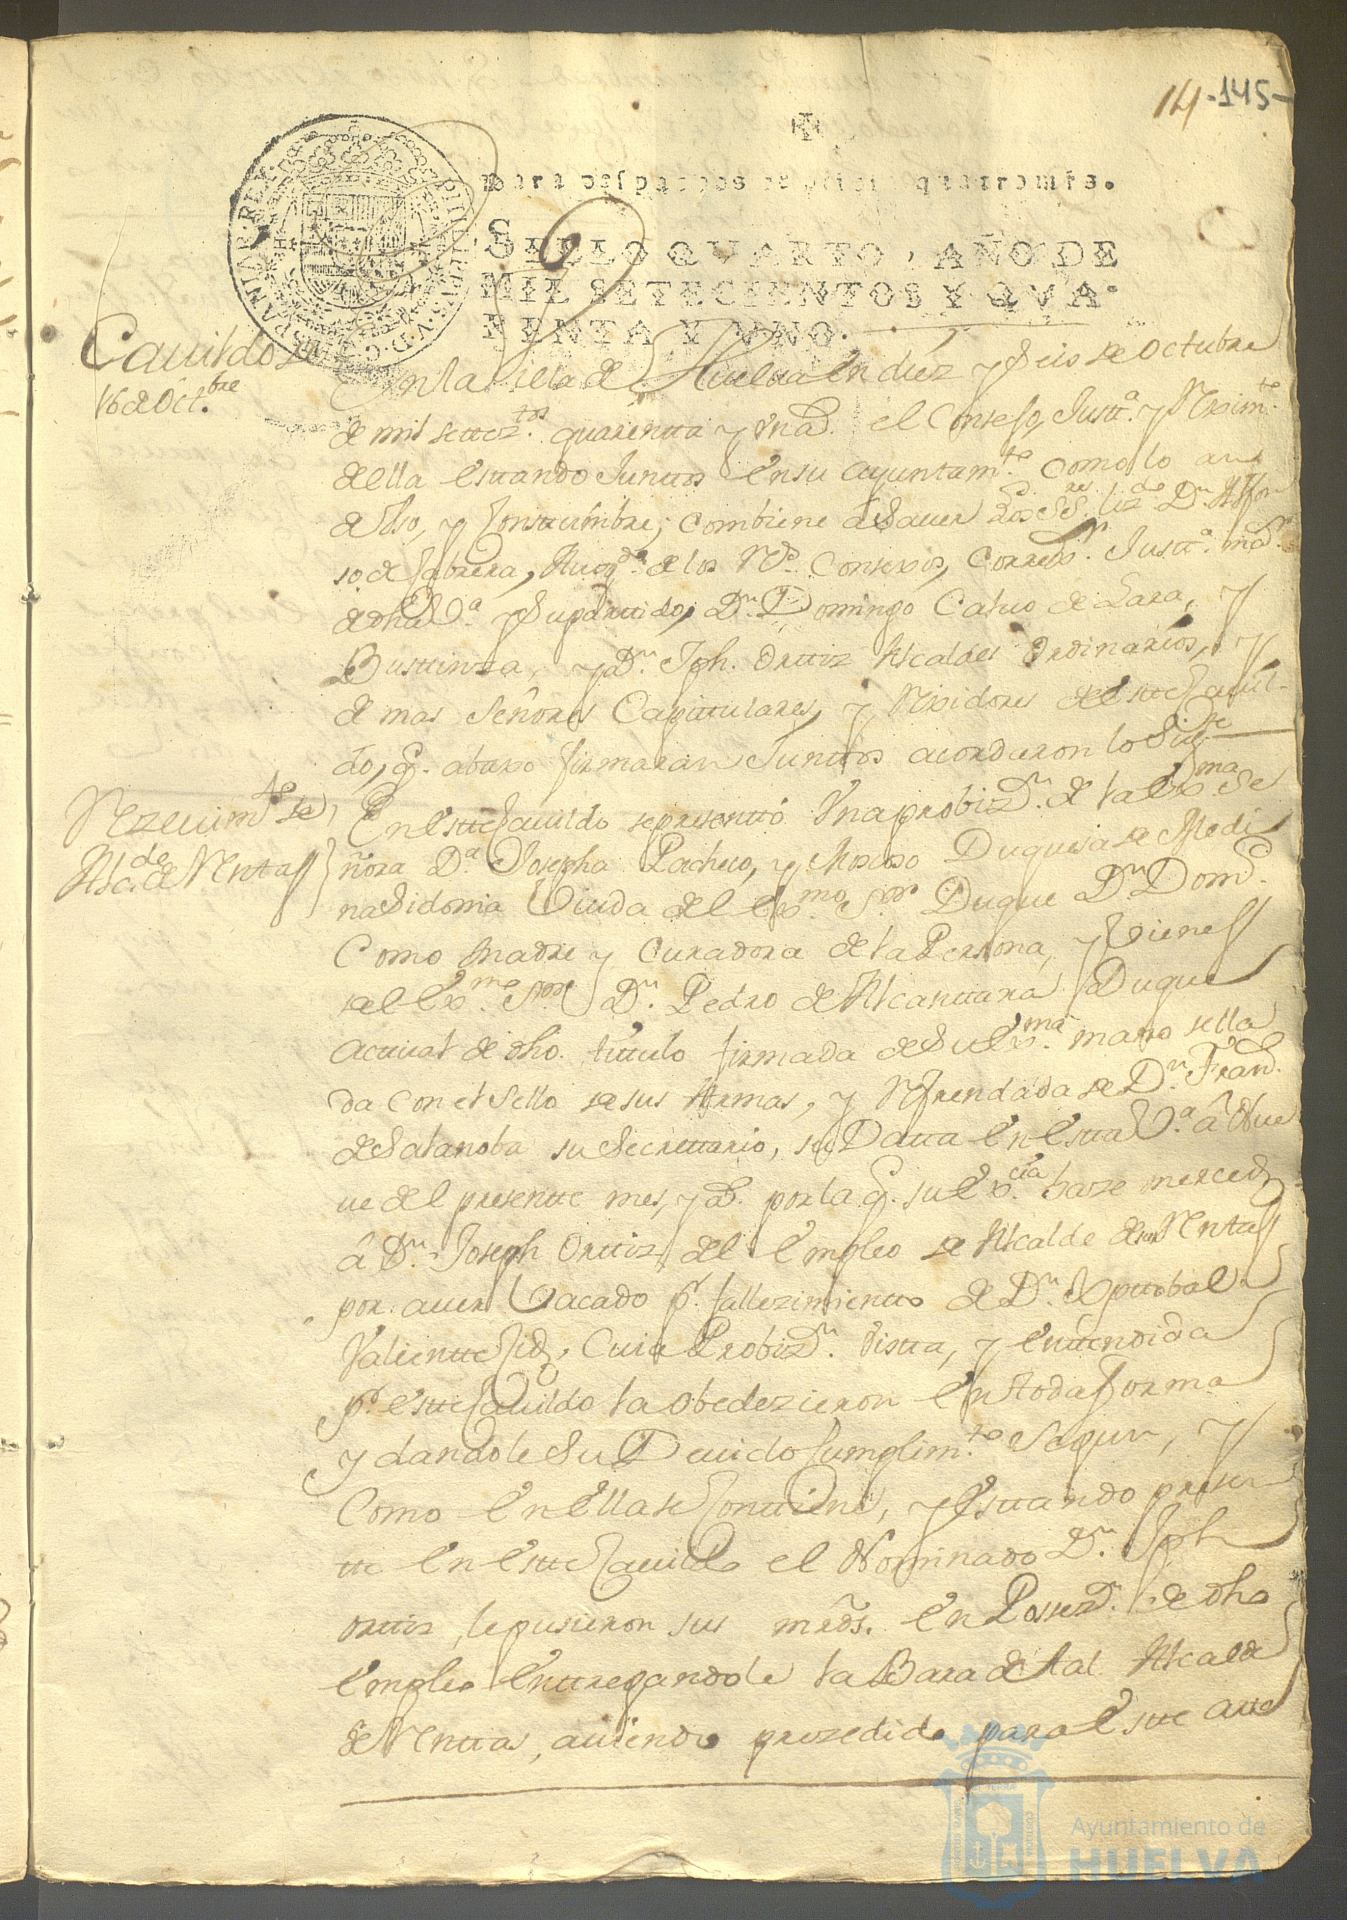 14 -145-
Para despachos de oficio quatro mrs.
SELLO QVARTO, AÑO DE
MIL SETECIENTOS Y QVA-
RENTA Y VNO.
Cauildo de
16 de Octbre
En la Villa de Huelua en diez y seis de Octubre
de mil settez.tos quarentta y un a.s el Consejo, Justt.a y Reximto
della esttando Junttos en su ayuntam.to como lo an
de Vso, y Consttumbre, combiene a sauer los SS.res liz.do Dn Alfon
so de Cabrera, Auog.do de los R.s Consexos, Correxor Justt.a
de dha V.a y su parttido, Dn Domingo Caluo de Lara, y
Busttinza, y Dn Jph. Orttiz Alcaldes ordinarios, y
de mas Señores Capittulares, y Rexidores de estte Cauil-
do, q. abaxo firmaran Junttos acordaron lo Sigte
Rezeuimto de
Alc.de de Renttas
En estte Cauildo se presenttó Vna probiz.n de la Exma Se
ñora D.a Josepha Pacheco, y Moscoso Duquesa de Medi
na Sidonia Viuda del Exmo Sor Duque Dn Domo
Como Madre y Curadora de la Persona, y Vienes
del Exmo Sor Dn Pedro de Alcanttara Duque
acttual de dho. tittulo firmada de su Exma mano sella
da con el sello de sus Armas, y Refrendada de Dn Franco
de Salanoba su Secrettario, su Datta en estta V.a â Nue
ue del presentte mes, y a.o por la q. su Excia haze merced
â Dn Joseph Orttiz del empleo de Alcalde de Renttas
por auer Vacado pr fallezimientto de Dn Xpttobal
Valientte Cid, Cuia Probiz.n Vistta, y enttendida
pr estte Cauildo la obedezieron en toda forma
y dandole su Deuido Cumplim.to Segun, y
Como en Ella se Conttiene, y esttando presen
tte en estte Cauildo el Nominado Dn Jph
Orttiz, le pusieron sus mrds. en Posez.n de dho
empleo enttregandole la Bara de tal Alcalde
de Renttas, auiendo prozedido para estte atto
Ayuntamiento de
HUELVA